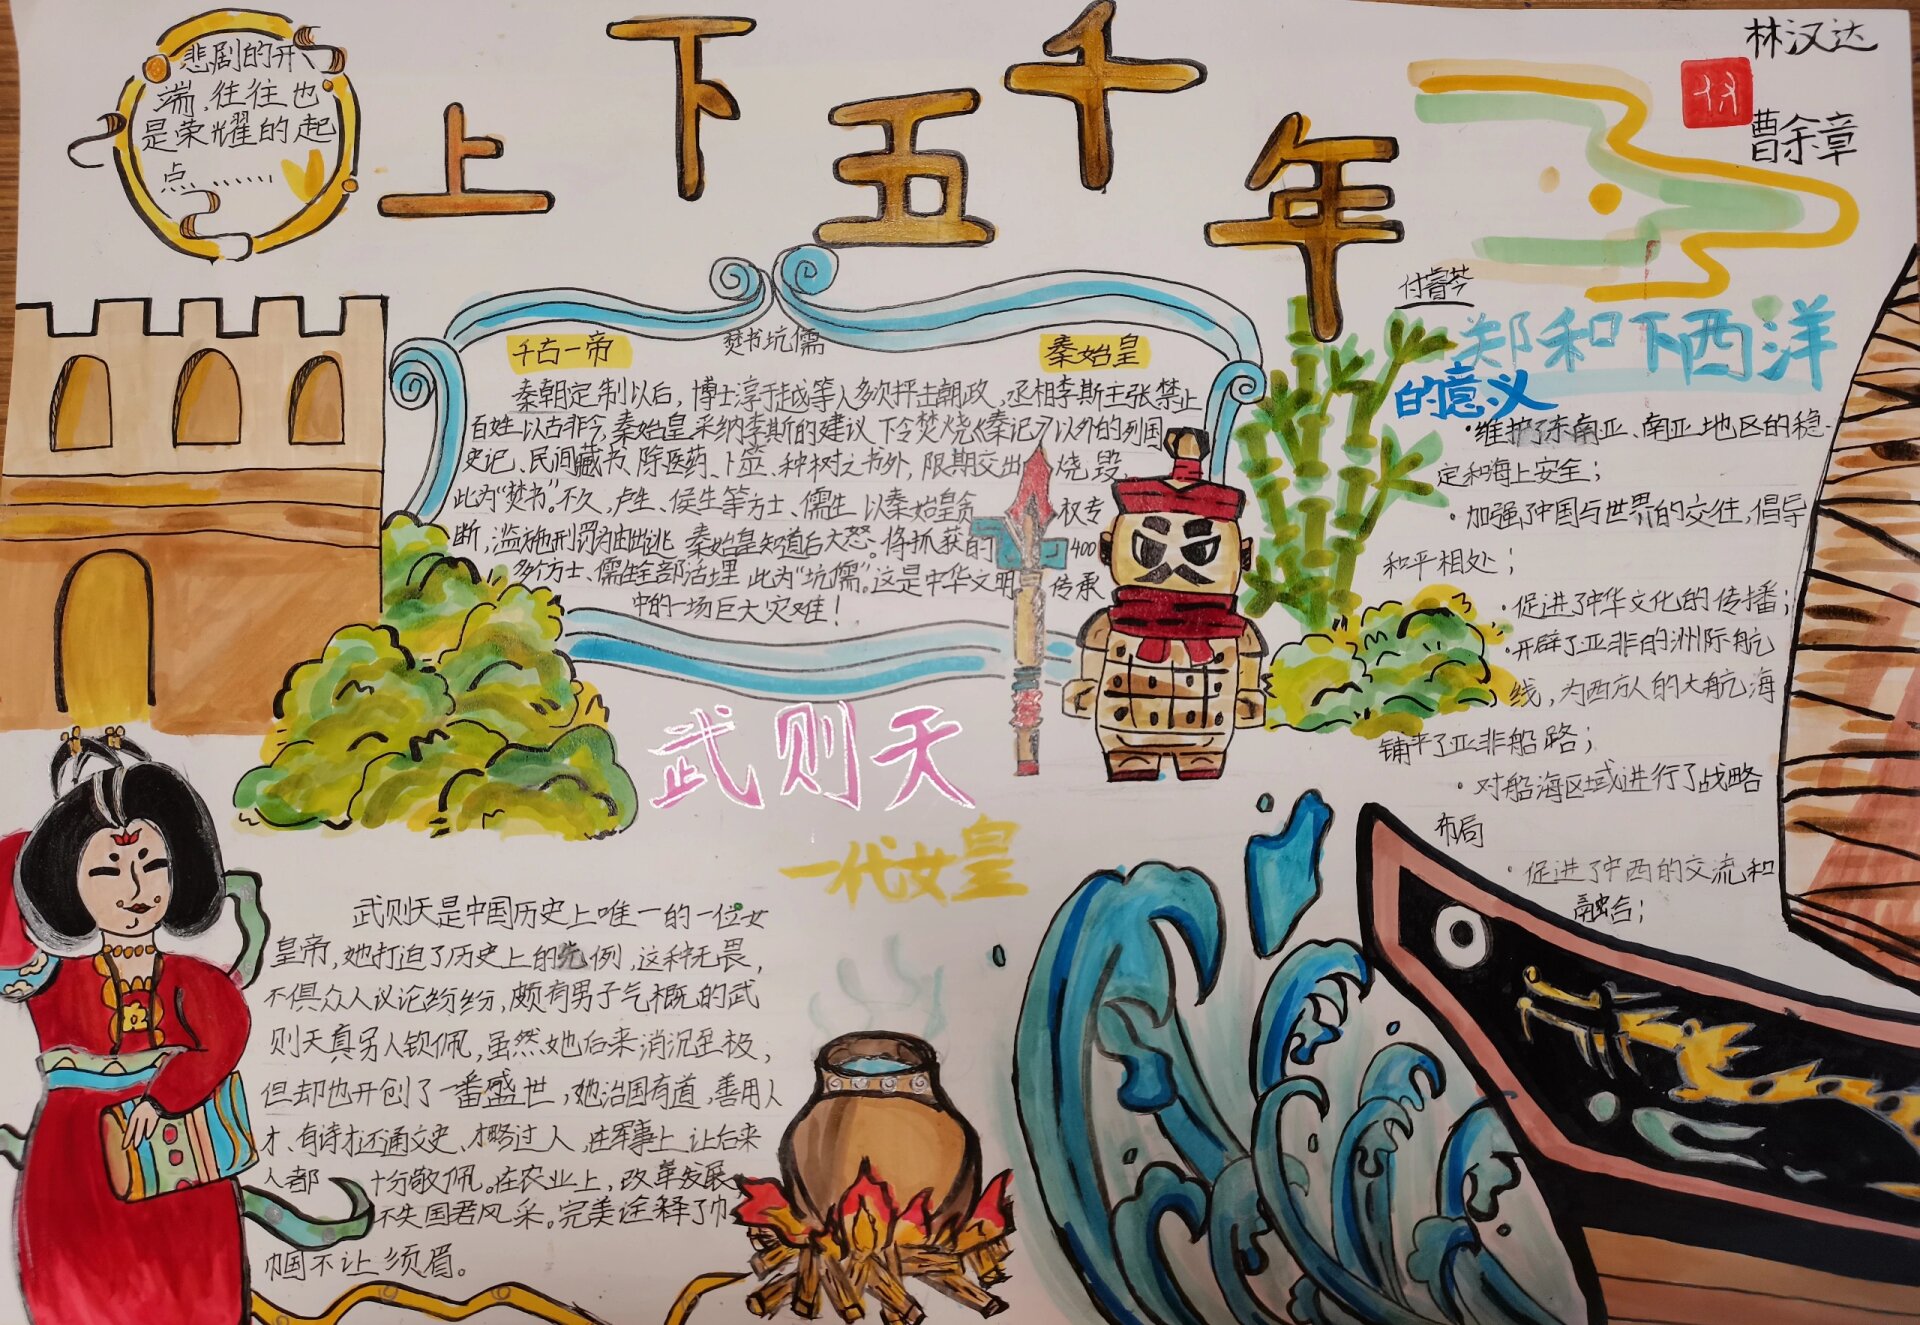 悲剧的开
端,往往也
是荣耀的起
点……
上下五千年
林汉达
曹余章
付睿芩
千古一帝
焚书坑儒
秦始皇
秦朝定制以后,博士淳于越等人多次抨击朝政,丞相李斯主张禁止
百姓以古非今,秦始皇采纳李斯的建议 下令焚烧《秦记》以外的列国
史记、民间藏书、除医药、卜筮、种树之书外,限期交出 烧毁、
此为“焚书”。不久,卢生、侯生等方士、儒生 以秦始皇贪 权专
断,滥施刑罚为由出逃 秦始皇知道后大怒。将抓获的 400
多个方士、儒生全部活埋 此为“坑儒”。这是中华文明 传承
中的一场巨大灾难!
郑和下西洋
的意义
·维护了东南亚、南亚地区的稳
定和海上安全;
·加强了中国与世界的交往,倡导
和平相处;
·促进了中华文化的传播;
·开辟了亚非的洲际航
线,为西方人的大航海
铺平了亚非船路;
·对船海区域进行了战略
布局
·促进了中西的交流和
融合;
武则天
一代女皇
武则天是中国历史上唯一的一位女
皇帝,她打迫了历史上的先例,这种无畏,
不俱众人议论纷纷,颇有男子气概的武
则天真另人钦佩,虽然她后来消沉至极,
但却也开创了一番盛世,她治国有道,善用人
才、有诗才还通文史、才略过人,在军事上,让后来
人都 十分敬佩。在农业上,改革发展,
不失国君风采。完美诠释了巾
帼不让须眉。